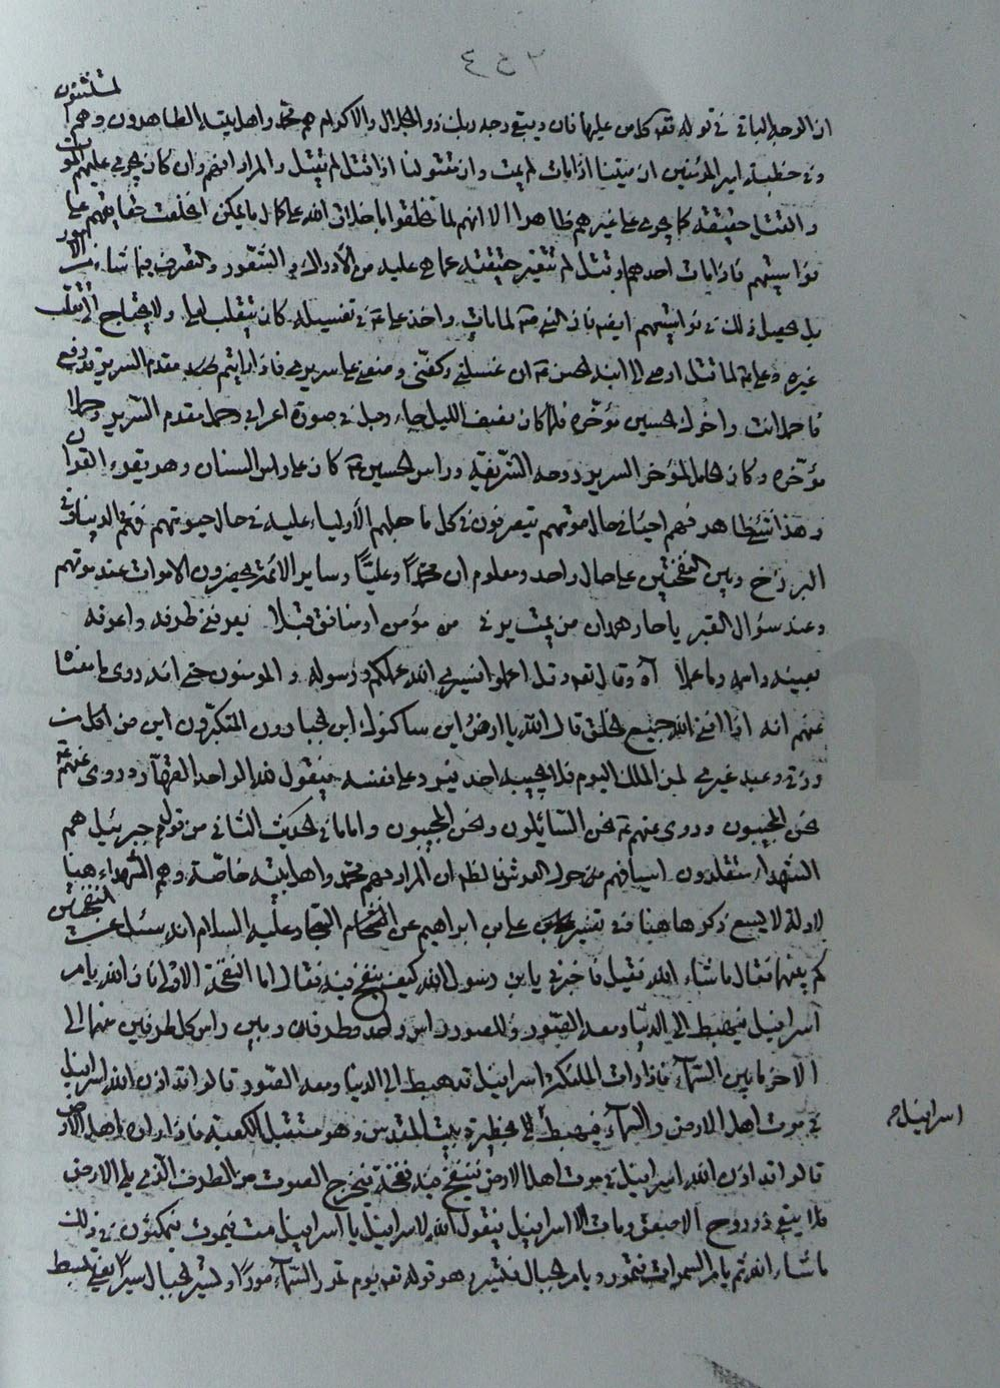 ٢٥٤
ان الوجه الباقي في قوله تعه كل من عليها فان ويبقى وجه ربك ذو الجلال والاكرام هم محمد واهل بيته الطاهرون وهم المستثنون
وفي خطبة امير المؤمنين ان ميتنا اذا مات لم يمت وان مقتولنا اذا قتل لم يقتل والمراد انهم وان كان يجري عليهم الموت
والقتل حقيقة كما يجري على غيرهم ظاهرا الا انهم لما خلقوا
فاذا مات احدهم او قتل لم تتغير حقيقته عما هي عليه من الأدراك والشعور والتصرف فيما شاء من الامور
بل يحصل ذلك
غيره وعلي ع لما قتل اوصى الى ابنه الحسن ع ان غسلني وكفني وضعني على سريري فاذا رأيتم مقدم السرير قد رفع
فاحمل انت واخوك الحسين مؤخره فلما كان نصف الليل جاء رجل في صورة اعرابي وحمل مقدم السرير وحملا
مؤخره وكان الحامل لمؤخر السرير روحه الشريفة وراس الحسين ع كان على راس السنان وهو يقرء القران
وهذا شئ ظاهر فهم احياء في حال موتهم يتصرفون في كل ما جعلهم الأولياء عليه في حال حيوتهم فهم في الدنيا وفي
البرزخ وبين النفختين على حال واحد ومعلوم ان محمدًا وعليًا وساير الائمة يحضرون الاموات عند موتهم
وعند سؤال القبر يا حار همدان من يمت يرني من مؤمن او منافق قبلا يعرفني طرفه واعرفه
بعينه واسمه وما عملا اه وقال تعه وقل اعملوا فسيرى الله عملكم ورسوله والمومنون حتى انه روى ما معناه
عنهم انه اذا افنى الله جميع الخلق قال الله يا ارض اين ساكنوك اين الجبارون المتكبرون اين من اكل
رزقي وعبد غيري لمن الملك اليوم فلا يجيبه احد فيرد على نفسه فيقول لله الواحد القهار وروى عنهم ع
نحن المجيبون وروى عنهم ع نحن السائلون ونحن المجيبون واما ما في الحديث الثاني من قول جبرئيل هم
الشهداء متقلدون اسيافهم من حول العرش فالظ ان المراد بهم محمد واهل بيته خاصة وهم الشهداء هنا
لادلة لا يسع ذكرها هنا ففي تفسير علي بن ابراهيم عن السجاد عليه السلام انه سئل عن النفختين
كم بينهما فقال ما شاء الله فقيل فاخبرني يابن رسول الله كيف ينفخ فيه فقال اما النفخة الاولى فان الله يامر
اسرافيل فيهبط الى الدنيا ومعه الصور وللصور راس واحد وطرفان وبين راس كل طرف منهما الى
الآخر ما بين السماء فاذا رات الملئكة اسرافيل قد هبط الى الدنيا ومعه الصور قالوا قد اذن الله لاسرافيل
في موت اهل الارض والسماء فيهبط الى حظيرة بيت المقدس وهو مستقبل الكعبة فاذا راه اهل الارض
اسرافيل
قالوا قد اذن الله لاسرافيل في موت اهل الارض فينفخ فيه نفخة فيخرج الصوت من الطرف الذي يلي الارض
فلا يبقى ذو روح الا صعق ومات الا اسرافيل فيقول الله لاسرافيل يا اسرافيل مت فيموت فيمكثون في ذلك
ما شاء الله ثم يامر السموات فتمور ويامر الجبال فتسير وهو قوله تعه يوم تمور السماء مورًا وتسير الجبال سيرًا يعني تبسط